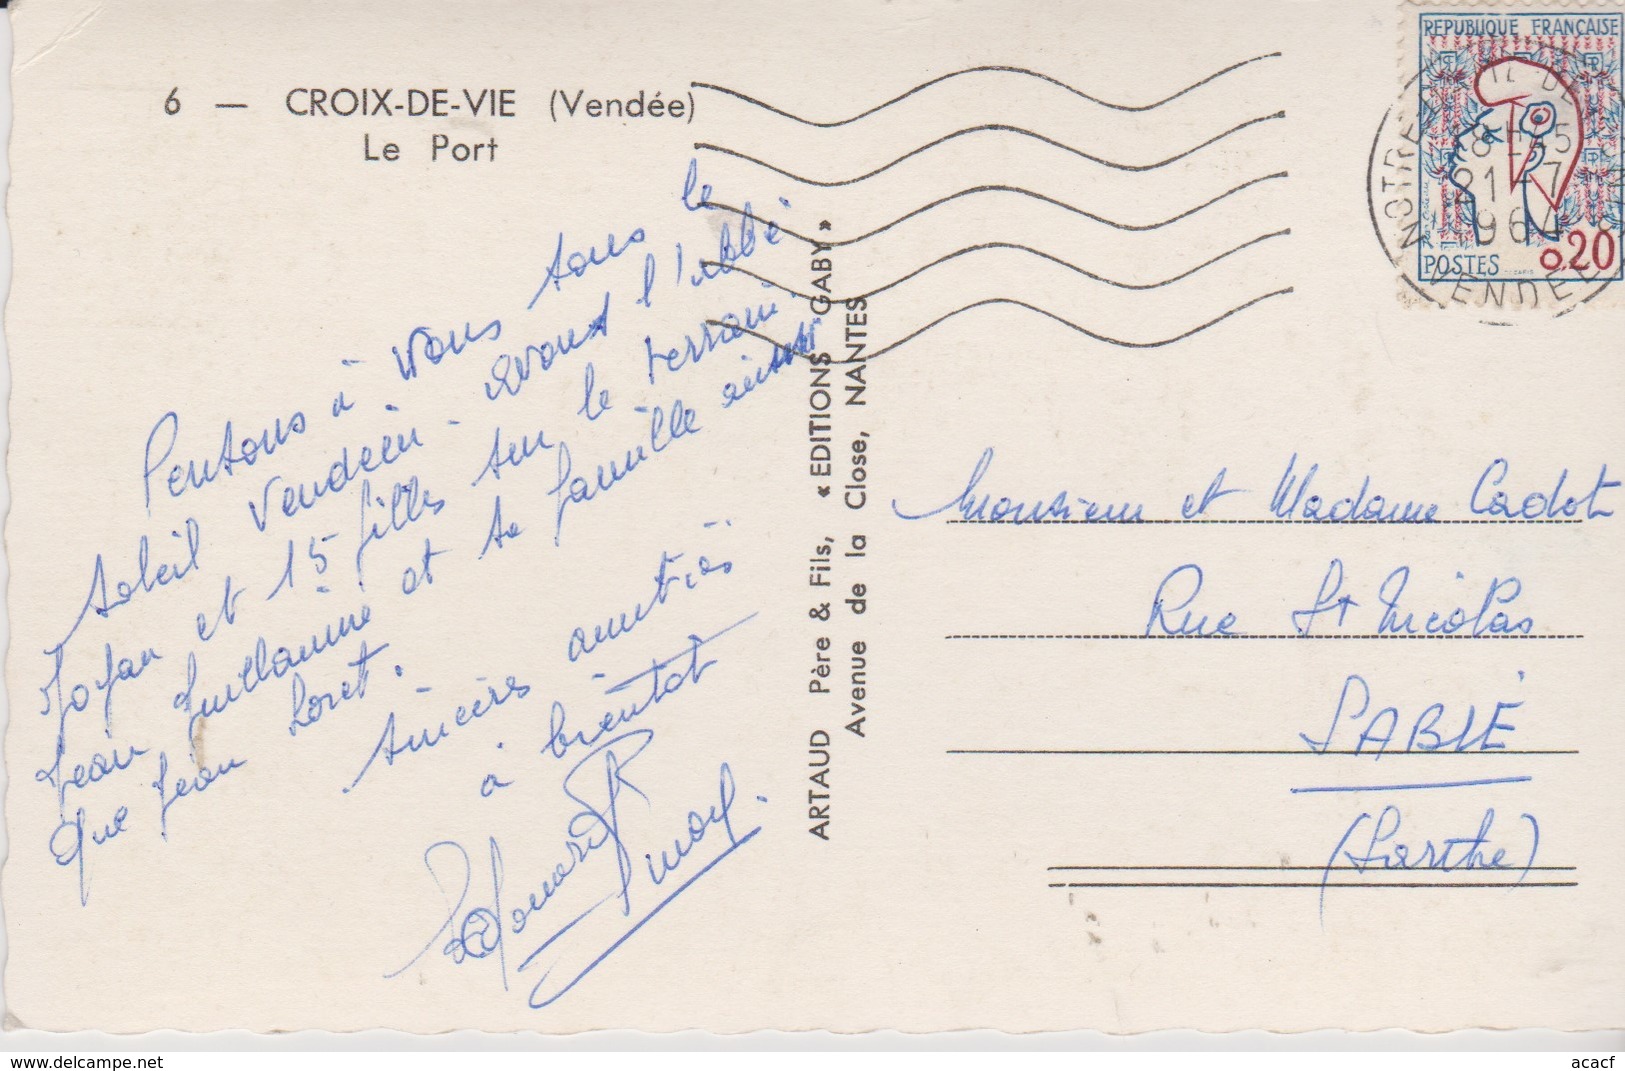 6 — CROIX-DE-VIE (Vendée)
Le Port
Pensons à vous sous le
soleil Vendéen. avons l'abbé
et 15 filles sur le terrain
Jean Guillaumé et sa famille ainsi
que Jean Loret.
sincères amitiés
à bientôt
ARTAUD Père & Fils, « EDITIONS GABY »
Avenue de la Close, NANTES
REPUBLIQUE FRANÇAISE
POSTES 0.20
NOTRE
VENDEE
8 H 45
21 - 7
1964
Monsieur et Madame Cadot
Rue St Nicolas
SABLÉ
(Sarthe)
delcampe.net
acacf